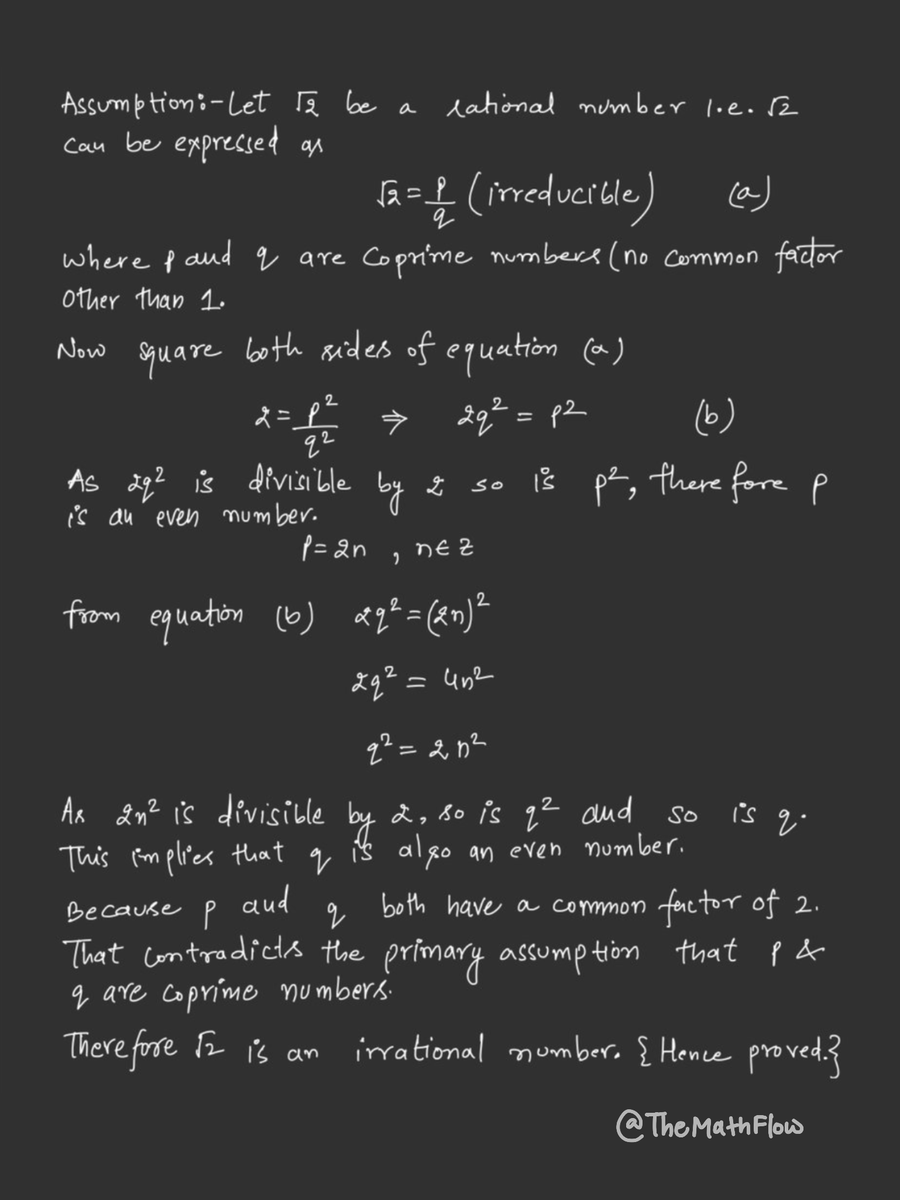 Assumption:-Let √2 be a rational number i.e. √2
can be expressed as
√2 = p/q (irreducible) (a)
where p and q are coprime numbers (no common factor
other than 1.
Now square both sides of equation (a)
2 = p²/q² ⇒ 2q² = p² (b)
As 2q² is divisible by 2 so is p², therefore p
is an even number.
p = 2n , n ∈ Z
from equation (b) 2q² = (2n)²
2q² = 4n²
q² = 2n²
As 2n² is divisible by 2, so is q² and so is q.
This implies that q is also an even number.
Because p and q both have a common factor of 2.
That contradicts the primary assumption that p &
q are coprime numbers.
Therefore √2 is an irrational number. {Hence proved.}
@TheMathFlow